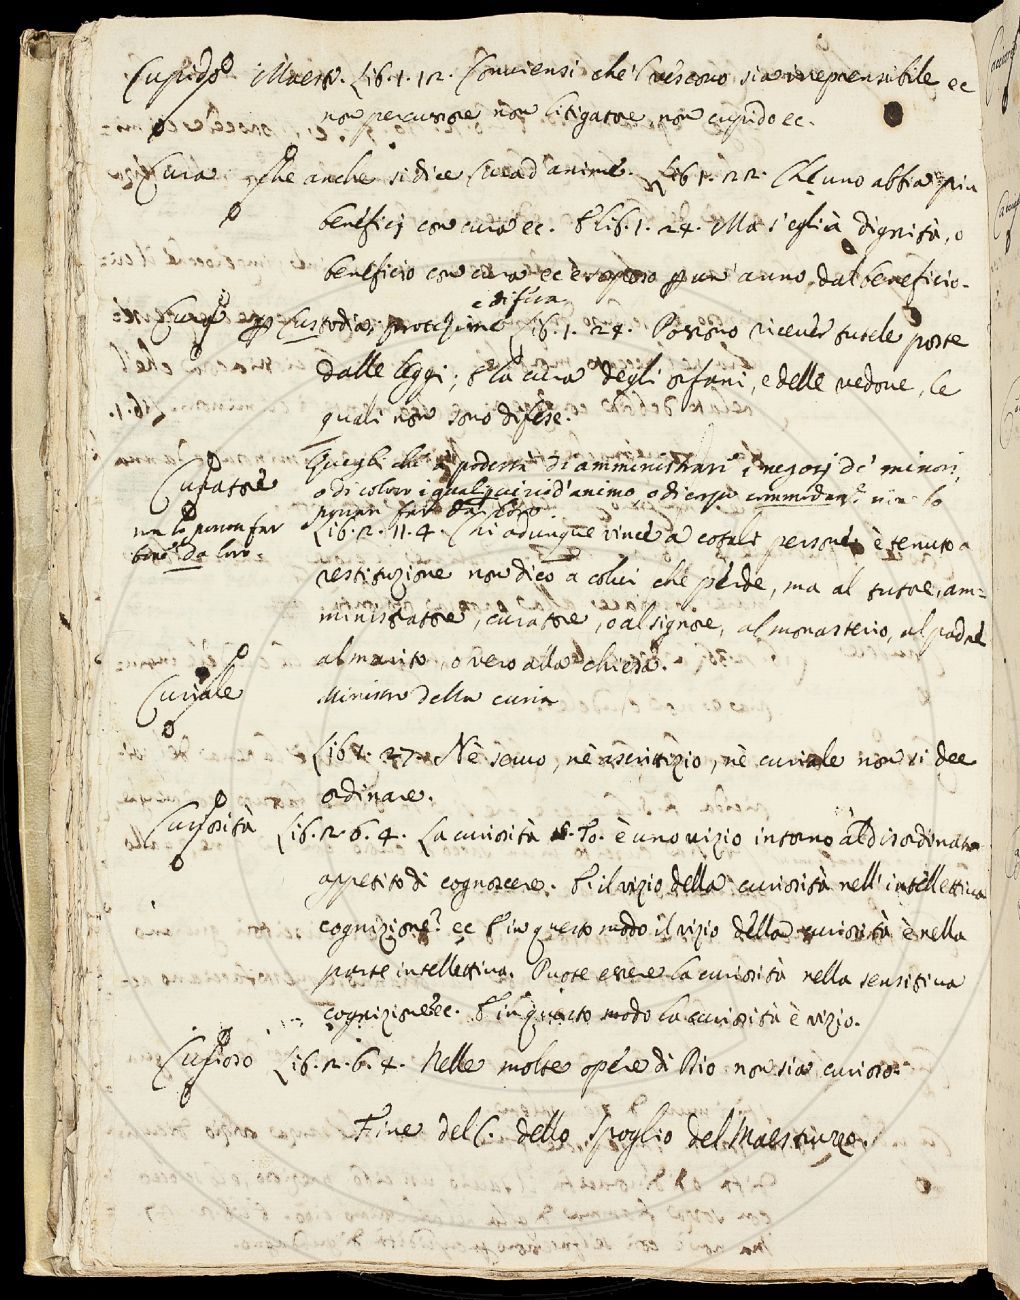 Cupido Maestr. Lib. 1. 12. Conviensi che 'l vescovo sia irreprensibile ec
non percussore non litigatore, non cupido ec.
Cura che anche si dice Cura d'anime. Lib. 1. 22. Che uno abbia più
beneficj con cura ec. E Lib. 1. 24. Ma s'egli à dignità, o
beneficio con cura ec è sospeso per un' anno dal beneficio.
Cura per Custodia, protezione e difesa
Lib. 1. 24. Possono ricever tutele poste
dalle leggi; E la cura degli orfani, e delle vedove, le
quali non sono difese.
Curatore Quegli ch' à podestà di amministrare i negozj de' minori,
o di coloro i quali per vizio d'animo, o di corpo
non lo posson far da loro
non lo posson far
bene da loro.
Lib. 2. 11. 4. Chi adunque vince a cotali persone, è tenuto a
restituzione non dico a colui che perde, ma al tutore, am=
ministratore, curatore, o al signore, al monasterio, al padre
al marito, o vero alla chiesa.
Curiale Ministro della curia
Lib. 1. 27. Nè servo, nè ascrittizio, nè curiale non si dee
ordinare.
Curiosità Lib. 2. 6. 4. La curiosità è uno vizio intorno al disordinato
appetito di cognoscere. E il vizio della curiosità nell' intellettiva
cognizione ec E in questo modo il vizio della curiosità è nella
parte intellettiva. Puote essere la curiosità nella sensitiva
cognizione ec. E in questo modo la curiosità è vizio.
Curioso Lib. 2. 6. 4. Nelle molte opere di Dio non sia curioso.
Fine del C. dello Spoglio del Maestruzzo.